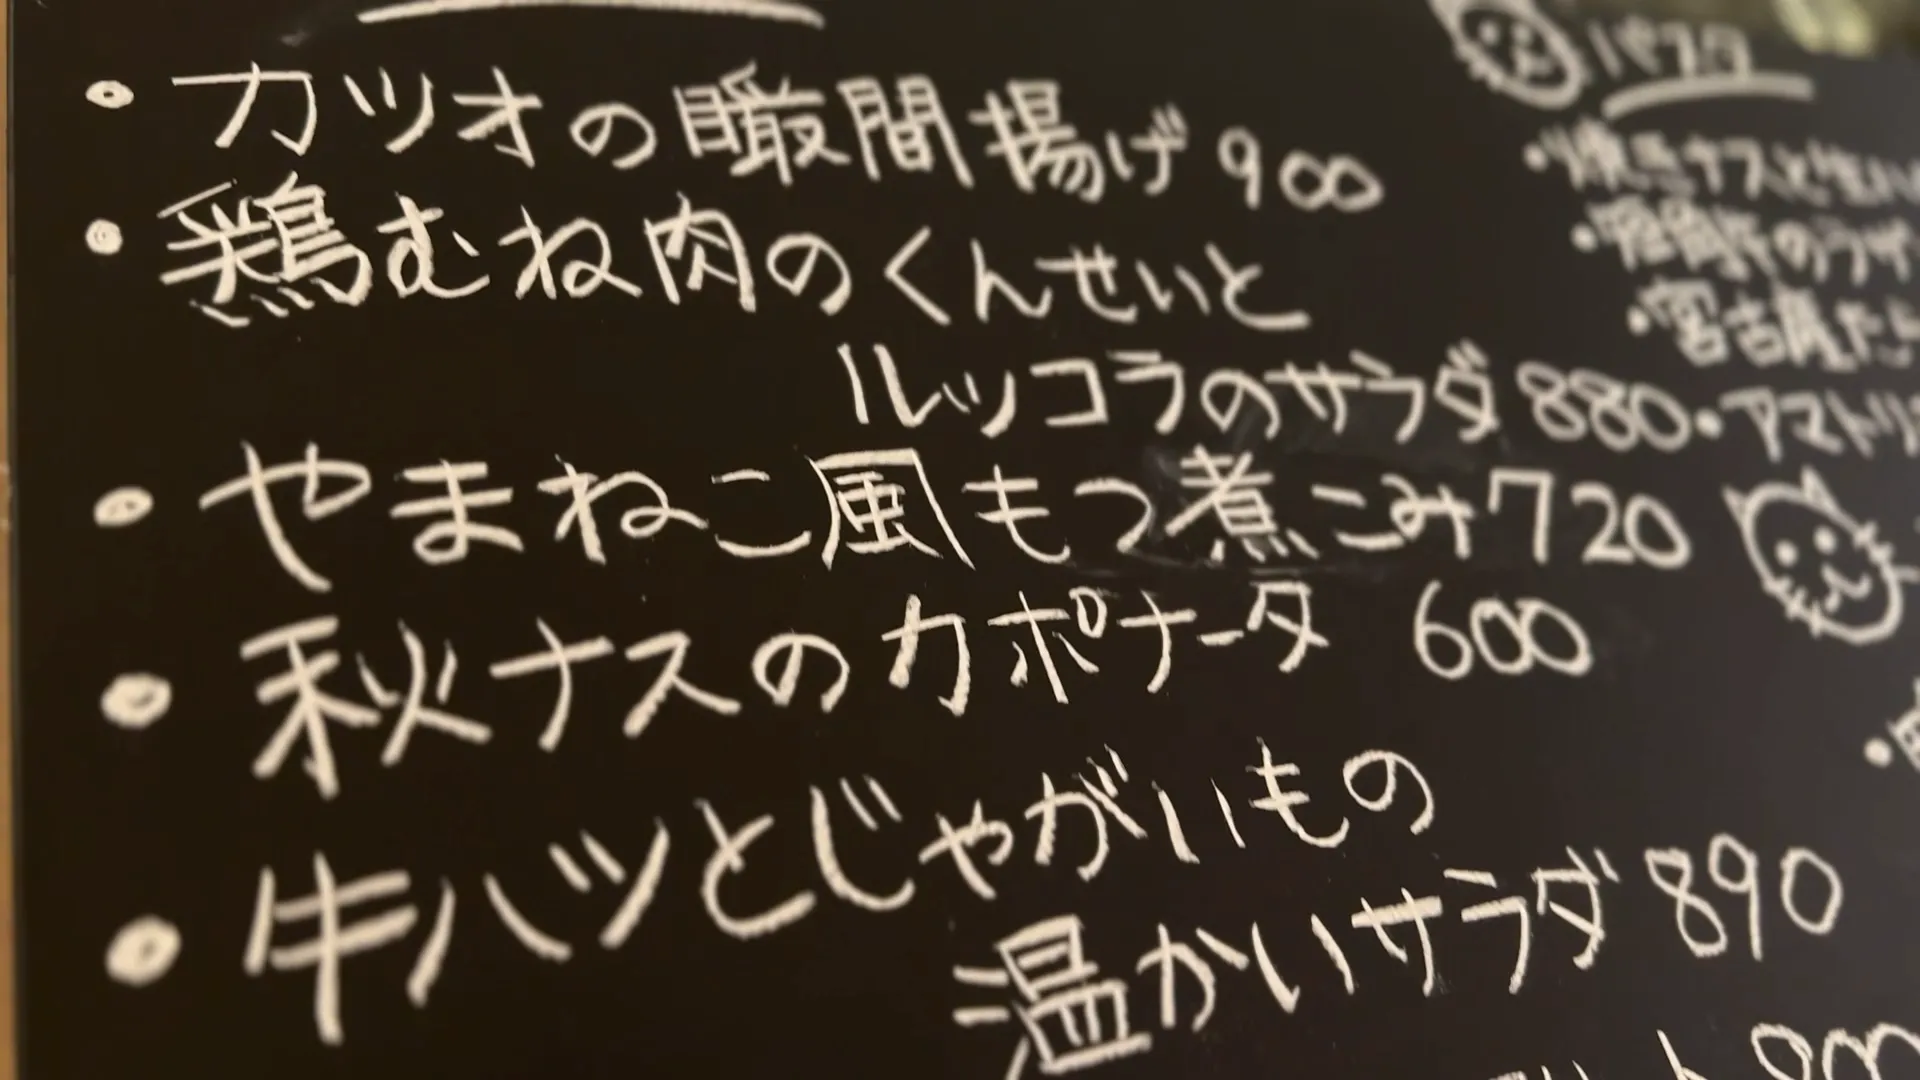 ・カツオの瞬間揚げ 900
・鶏むね肉のくんせいと
ルッコラのサラダ 880
・やまねこ風もつ煮こみ 720
・秋ナスのカポナータ 600
・牛ハツとじゃがいもの
温かいサラダ 890
パスタ
・焼きナスと
・アマトリ